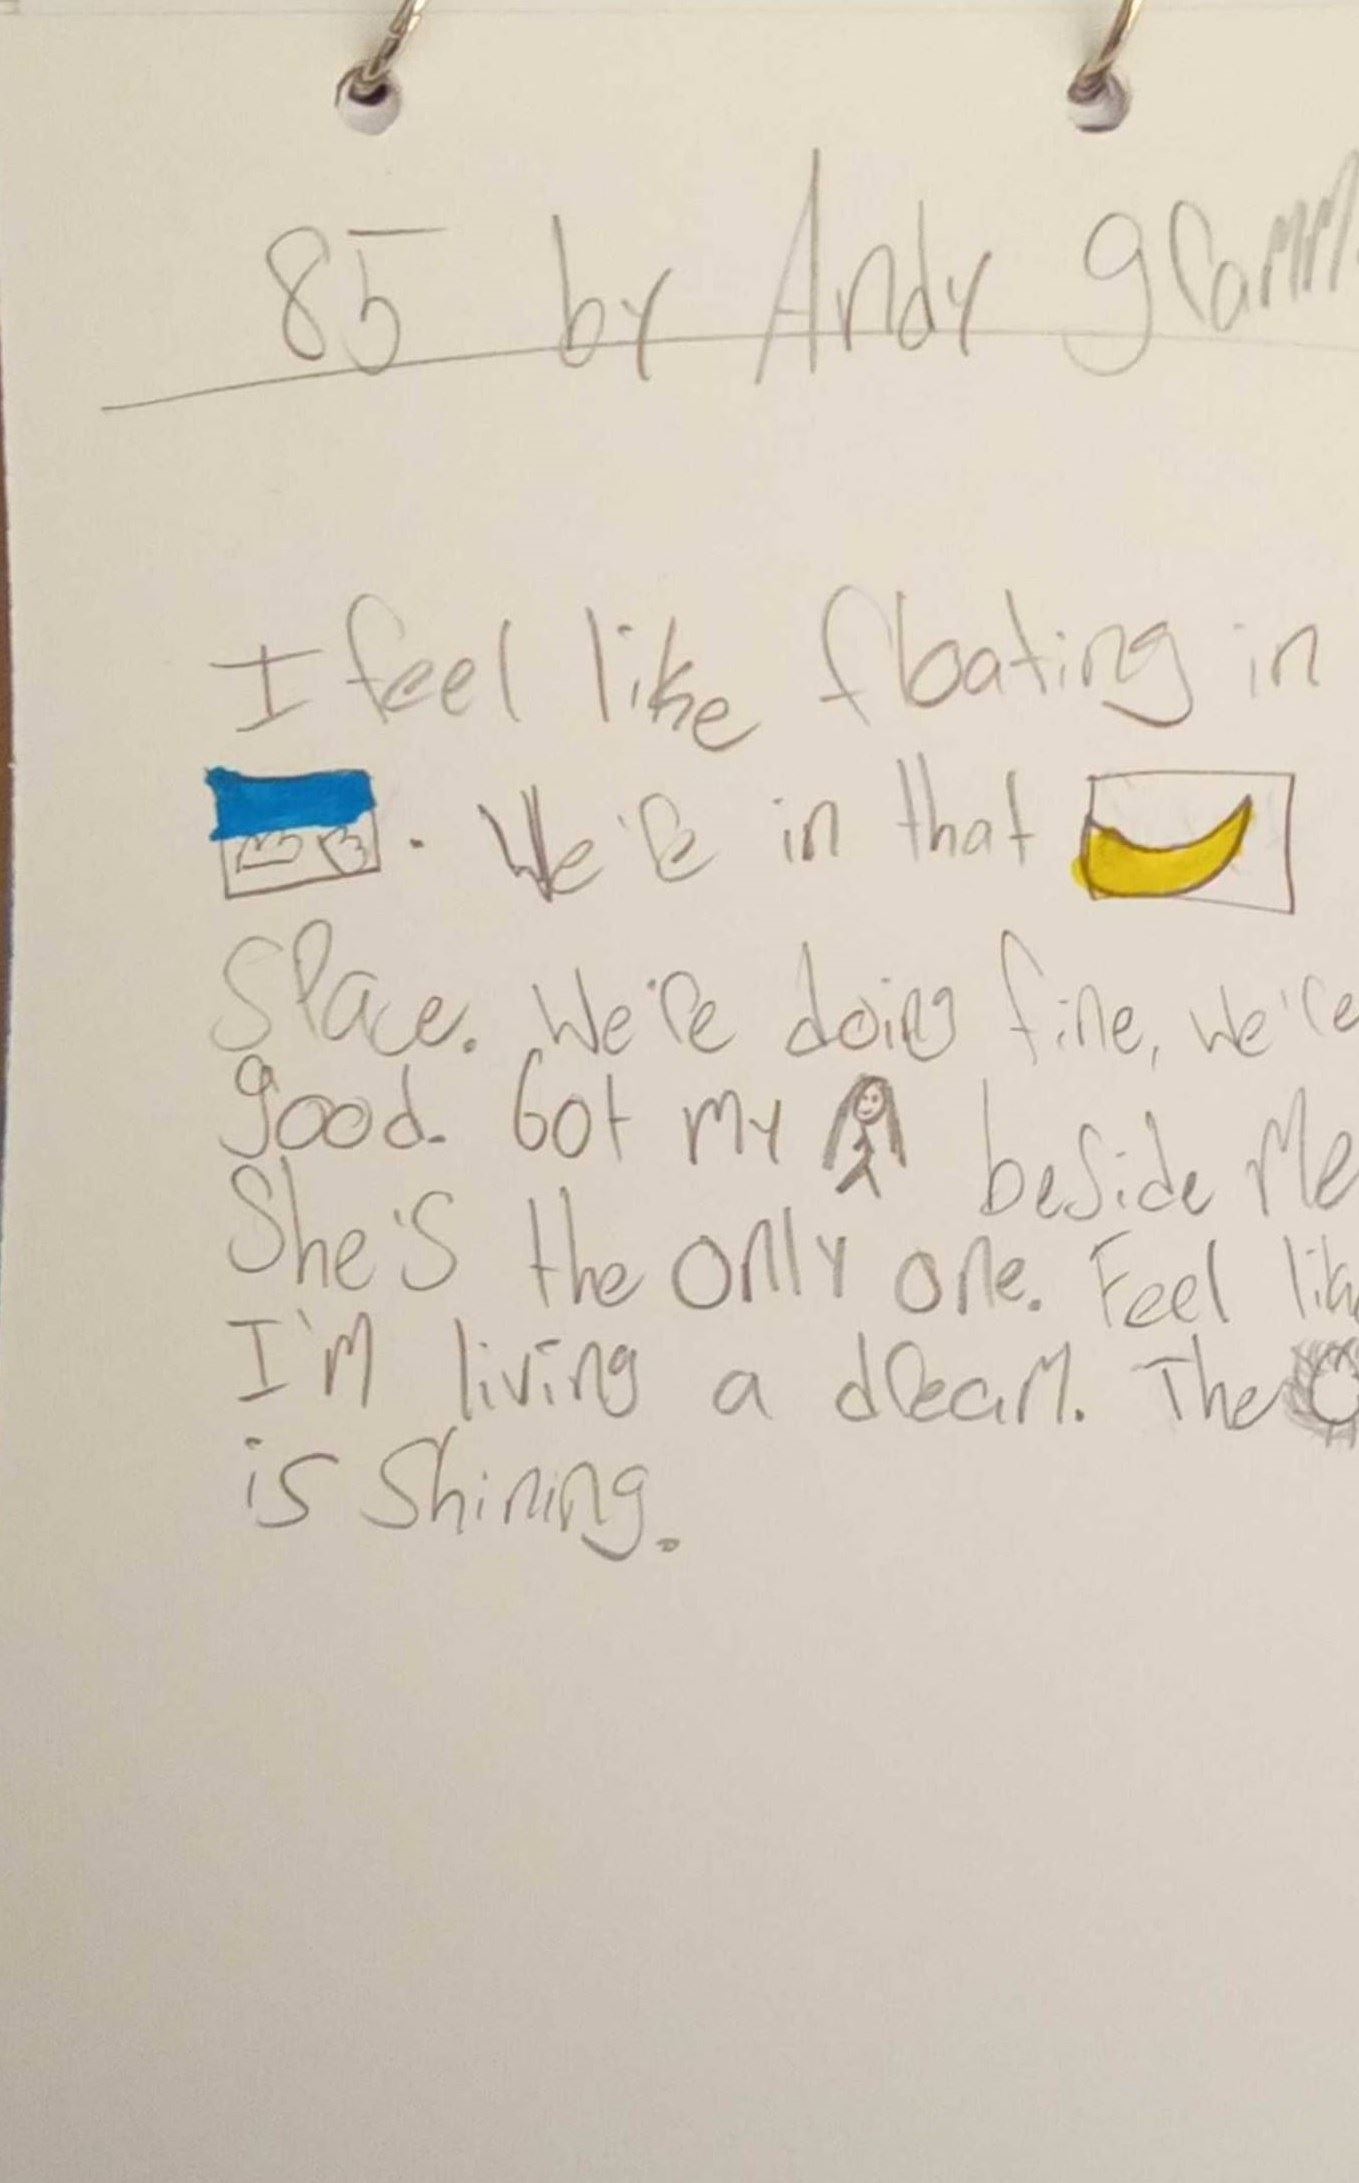 85 by Andy gramm
I feel like floating in
. We're in that
Space. We're doing fine, we're
good. Got my beside me
She's the only one. Feel
I'm living a dream. The
is Shining.